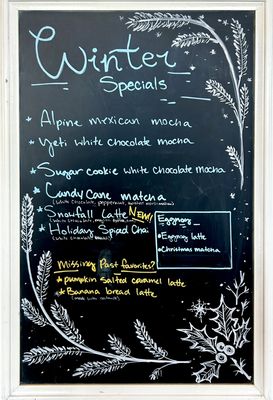 Winter
Specials
* Alpine mexican mocha
* Yeti white chocolate mocha
* Sugar cookie white chocolate mocha
* Candy Cane matcha
* Snowfall Latte NEW!
* Holiday Spiced Chai
Eggnog
• Eggnog latte
• Christmas matcha
Missing Past favorites?
* pumpkin salted caramel latte
* Banana bread latte